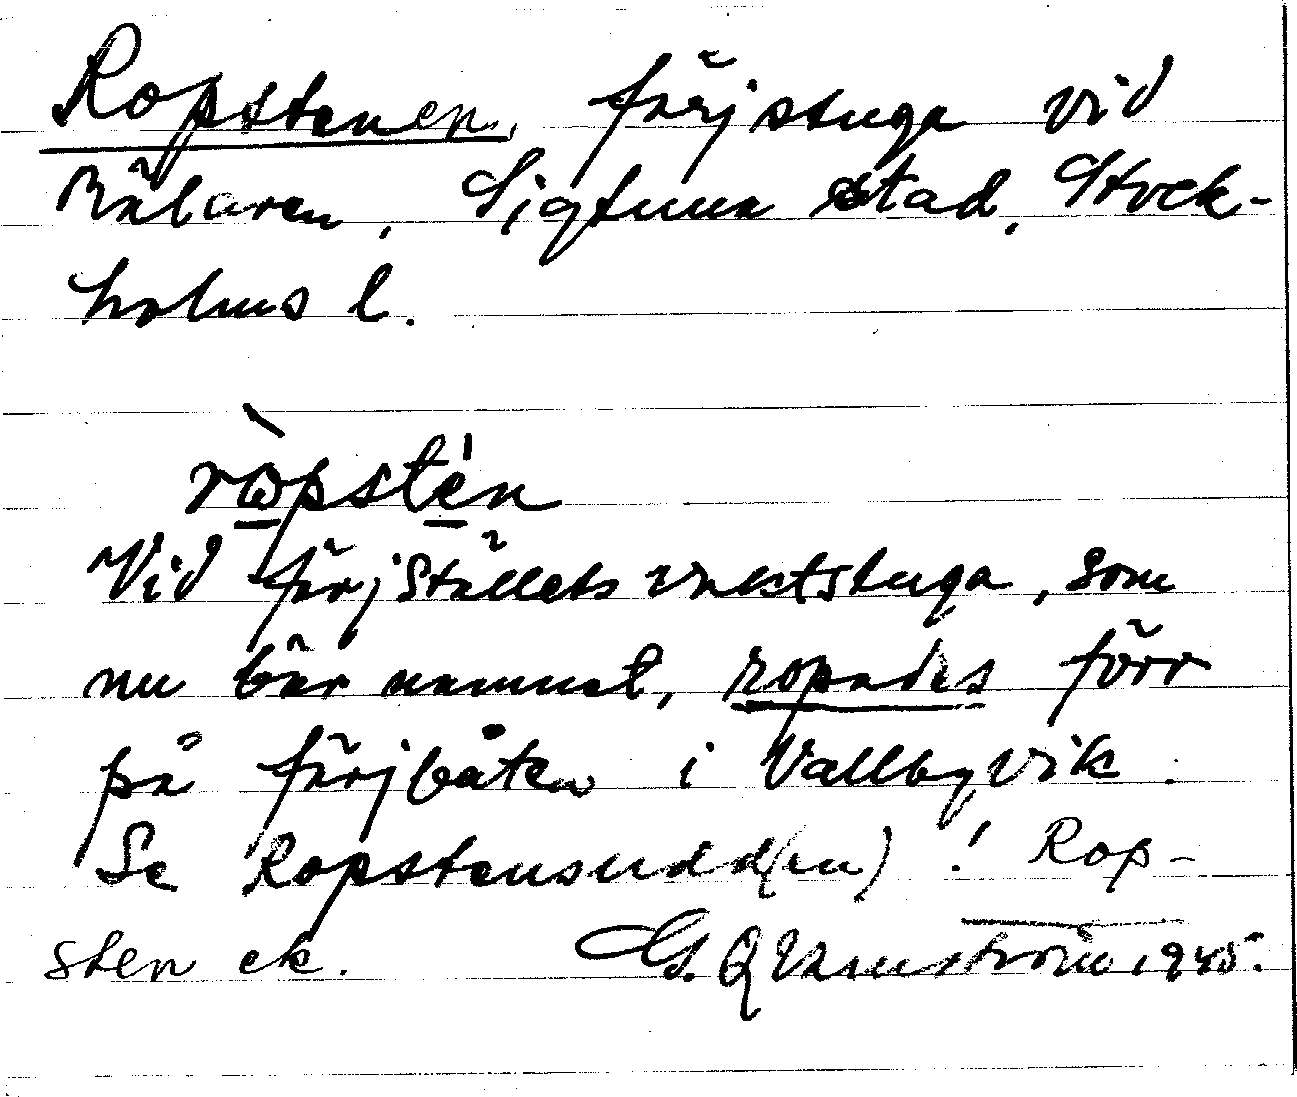 Ropstenen, färjstuga vid
Mälaren, Sigtuna stad, Stock-
holms l.
ròpstén
Vid färjställets vaktstuga, som
nu bär namnet, ropades förr
på färjbåten i Vallbyvik.
Se Ropstensudd(en)! Rop-
sten ek. G. Qvarnström 1945.